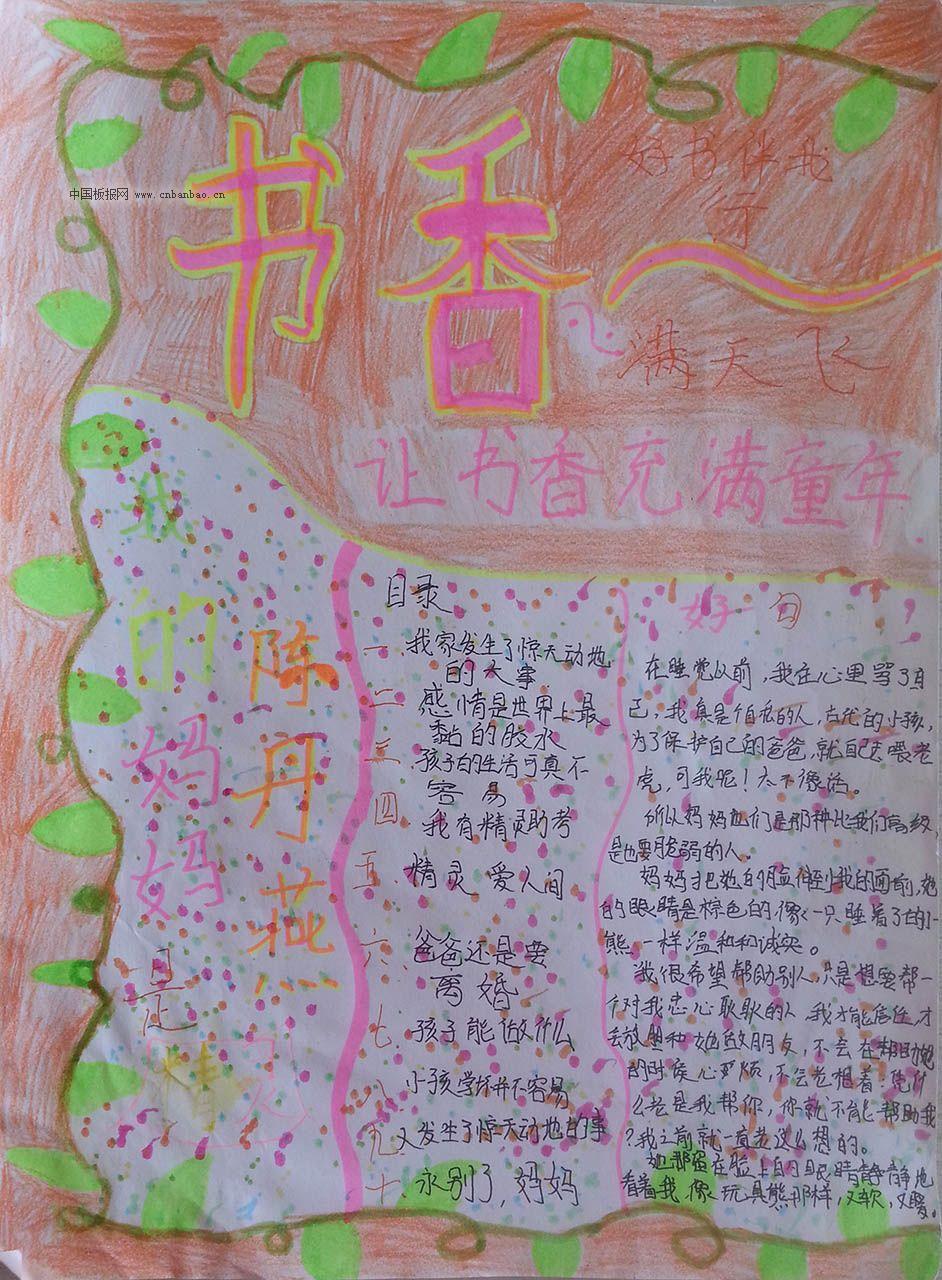 书香
好书伴我
行
满天飞
中国板报网 www.cnbanbao.cn
让书香充满童年
我的妈妈是精
陈丹燕
目录
一 我家发生了惊天动地
的大事
二 感情是世界上最
黏的胶水
三 孩子的生活可真不
容易
四 我有精灵助考
五 精灵爱人间
六 爸爸还是要
离婚
七 孩子能做什么
八 小孩学坏并不容易
九 又发生了惊天动地的事
十 永别了,妈妈
好句
在睡觉以前,我在心里骂了自
己,我真是个自私的人,古代的小孩,
为了保护自己的爸爸,就自己去喂老
虎,可我呢!太不像话。
所以妈妈他们是那种比我们高级,
是也要脆弱的人。
妈妈才把她的脸伸到我的面前,她
的眼睛是棕色的,像一只睡着了的小
熊一样温和和诚实。
我很希望帮助别人,只是想要帮一
个对我忠心耿耿的人,我才能信任,才
和她做朋友,不会在帮助她
的时候心里烦,不会老想着:凭什
么老是我帮你,你就不能帮助我
?我之前就一直是这么想的。
她那留在脸上的眼睛静静地
看着我,像玩具熊那样,又软,又暖。